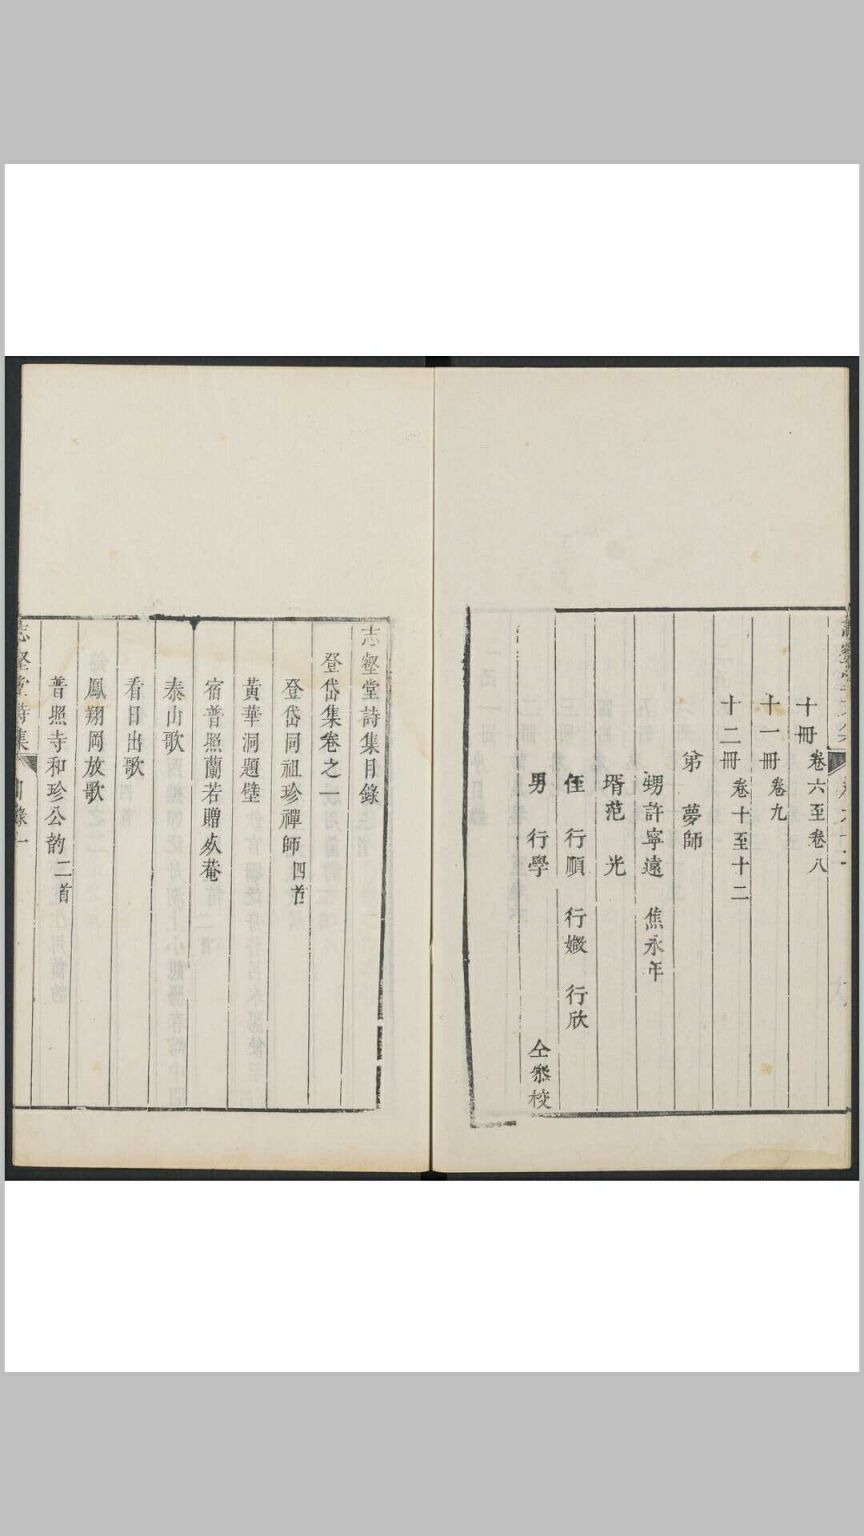 十冊 卷六至卷八
十一冊 卷九
十二冊 卷十至十二
弟 夢師
甥許寧遠 焦永年
壻范 光
侄 行順 行嫩 行欣
男 行學 仝叅校
志壑堂詩集目錄
登岱集卷之一
登岱同祖珍禪師 四首
黃華洞題壁
宿普照蘭若贈㶬菴
泰山歌
看日出歌
鳳翔岡放歌
普照寺和珍公韵 二首
志壑堂詩集 目錄 一